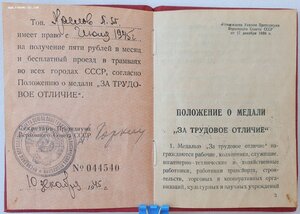 Тов.
имеет право с 1945 г.
на получение пяти рублей в месяц
и бесплатный проезд в трамваях
во всех городах СССР, согласно
Положению о медали „ЗА ТРУДО-
ВОЕ ОТЛИЧИЕ“.
Секретарь Президиума
Верховного Совета СССР
№ 044540
10 декабря 1945 г.
Утверждено Указом Президиума
Верховного Совета СССР
от 27 декабря 1938 г.
ПОЛОЖЕНИЕ О МЕДАЛИ
„ЗА ТРУДОВОЕ ОТЛИЧИЕ“
1. Медалью „За трудовое отличие“ на-
граждаются рабочие, колхозники, служащие,
инженерно-технические и хозяйственные
работники, работники транспорта, строи-
тельств, торговых и кооперативных орга-
низаций, культурных и научных учреждений